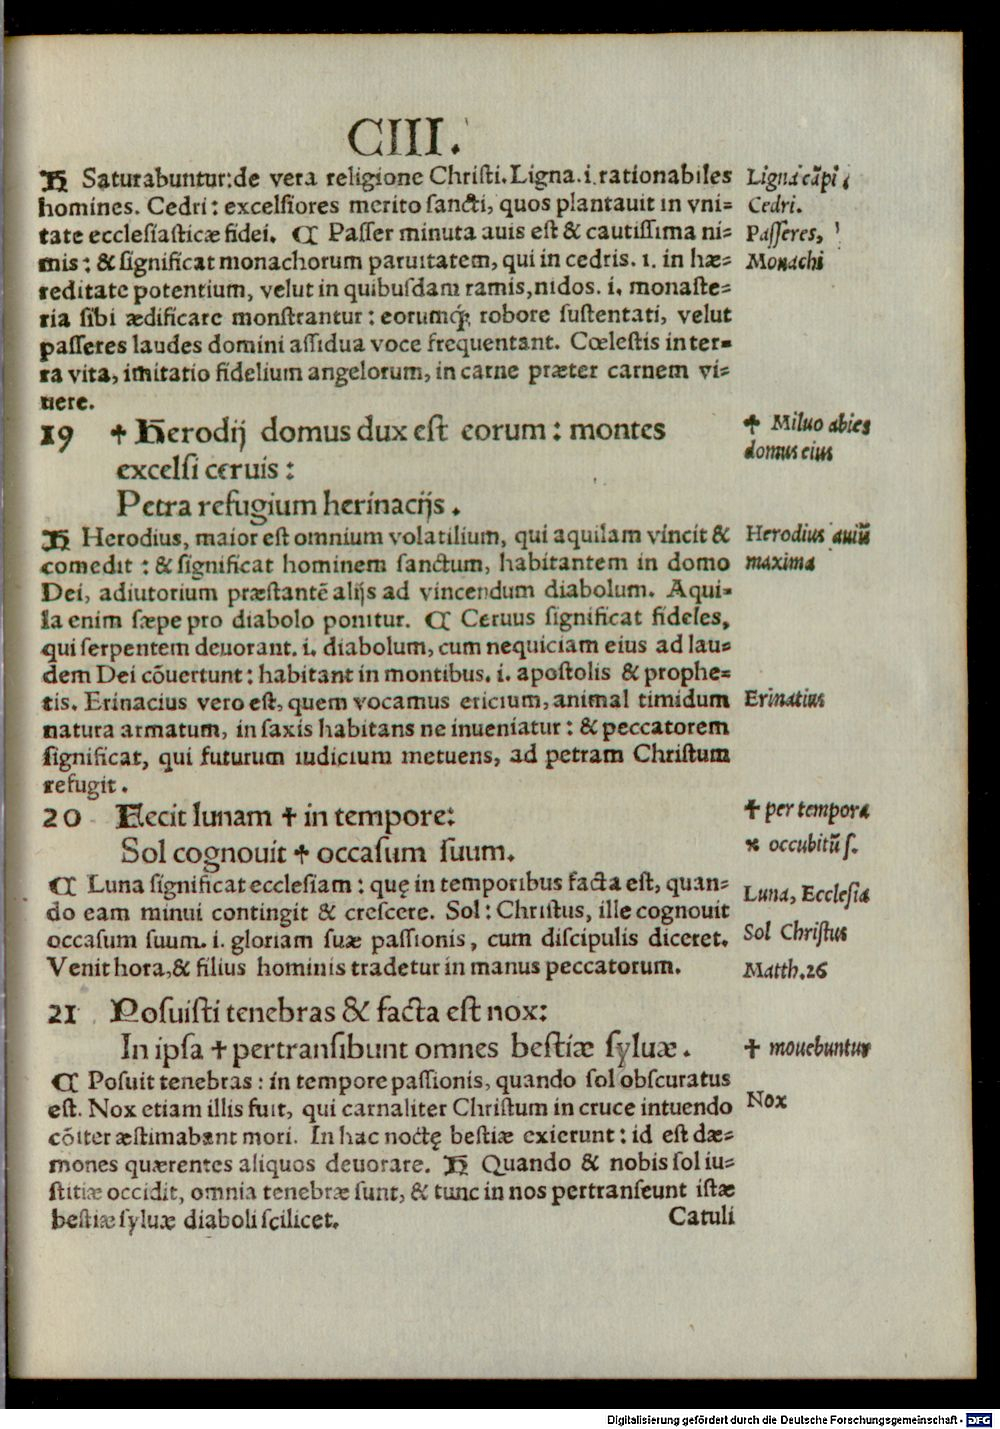 CIII.
H Saturabuntur: de vera religione Christi. Ligna .i. rationabiles
homines. Cedri: excelsiores merito sancti, quos plantauit in vni=
tate ecclesiasticæ fidei. ¶ Passer minuta auis est & cautissima ni=
mis: & significat monachorum paruitatem, qui in cedris. i. in hæ=
reditate potentium, velut in quibusdam ramis, nidos. i. monaste=
ria sibi ædificare monstrantur: eorumq́; robore sustentati, velut
passeres laudes domini assidua voce frequentant. Cœlestis in ter=
ra vita, imitatio fidelium angelorum, in carne præter carnem vi=
uere.
Ligna cāpi
Cedri.
Passeres,
Monachi
19 ✝ Herodij domus dux est eorum: montes
excelsi ceruis:
Petra refugium herinacijs.
✝ Miluo abies
domus eius
H Herodius, maior est omnium volatilium, qui aquilam vincit &
comedit: & significat hominem sanctum, habitantem in domo
Dei, adiutorium præstantē alijs ad vincendum diabolum. Aqui=
la enim sæpe pro diabolo ponitur. ¶ Ceruus significat fideles,
qui serpentem deuorant. i. diabolum, cum nequiciam eius ad lau=
dem Dei cōuertunt: habitant in montibus. i. apostolis & prophe=
tis. Erinacius vero est, quem vocamus ericium, animal timidum
natura armatum, in saxis habitans ne inueniatur: & peccatorem
significat, qui futurum iudicium metuens, ad petram Christum
refugit.
Herodius auiū
maxima
Erinatius
20 Fecit lunam ✝ in tempore:
Sol cognouit ✝ occasum suum.
✝ per tempora
✝ occubitū s.
¶ Luna significat ecclesiam: quę in temporibus facta est, quan=
do eam minui contingit & crescere. Sol: Christus, ille cognouit
occasum suum. i. gloriam suæ passionis, cum discipulis diceret.
Venit hora, & filius hominis tradetur in manus peccatorum.
Luna, Ecclesia
Sol Christus
Matth. 26
21 Posuisti tenebras & facta est nox:
In ipsa ✝ pertransibunt omnes bestiæ syluæ.
✝ mouebuntur
¶ Posuit tenebras: in tempore passionis, quando sol obscuratus
est. Nox etiam illis fuit, qui carnaliter Christum in cruce intuendo
cōiter æstimabant mori. In hac noctę bestiæ exierunt: id est dæ=
mones quærentes aliquos deuorare. H Quando & nobis sol iu=
stitiæ occidit, omnia tenebræ sunt, & tunc in nos pertranseunt istæ
bestiæ syluæ diaboli scilicet.
Nox
Catuli
Digitalisierung gefördert durch die Deutsche Forschungsgemeinschaft - DFG